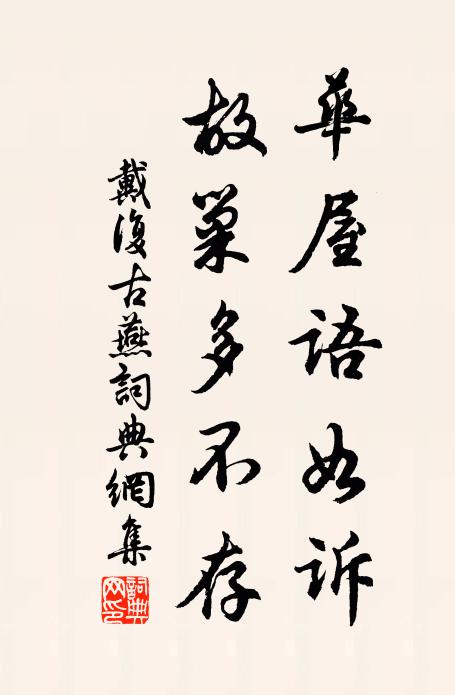 華屋語如訴
故巢多不存
戴復古燕詞典網集
詞典網印